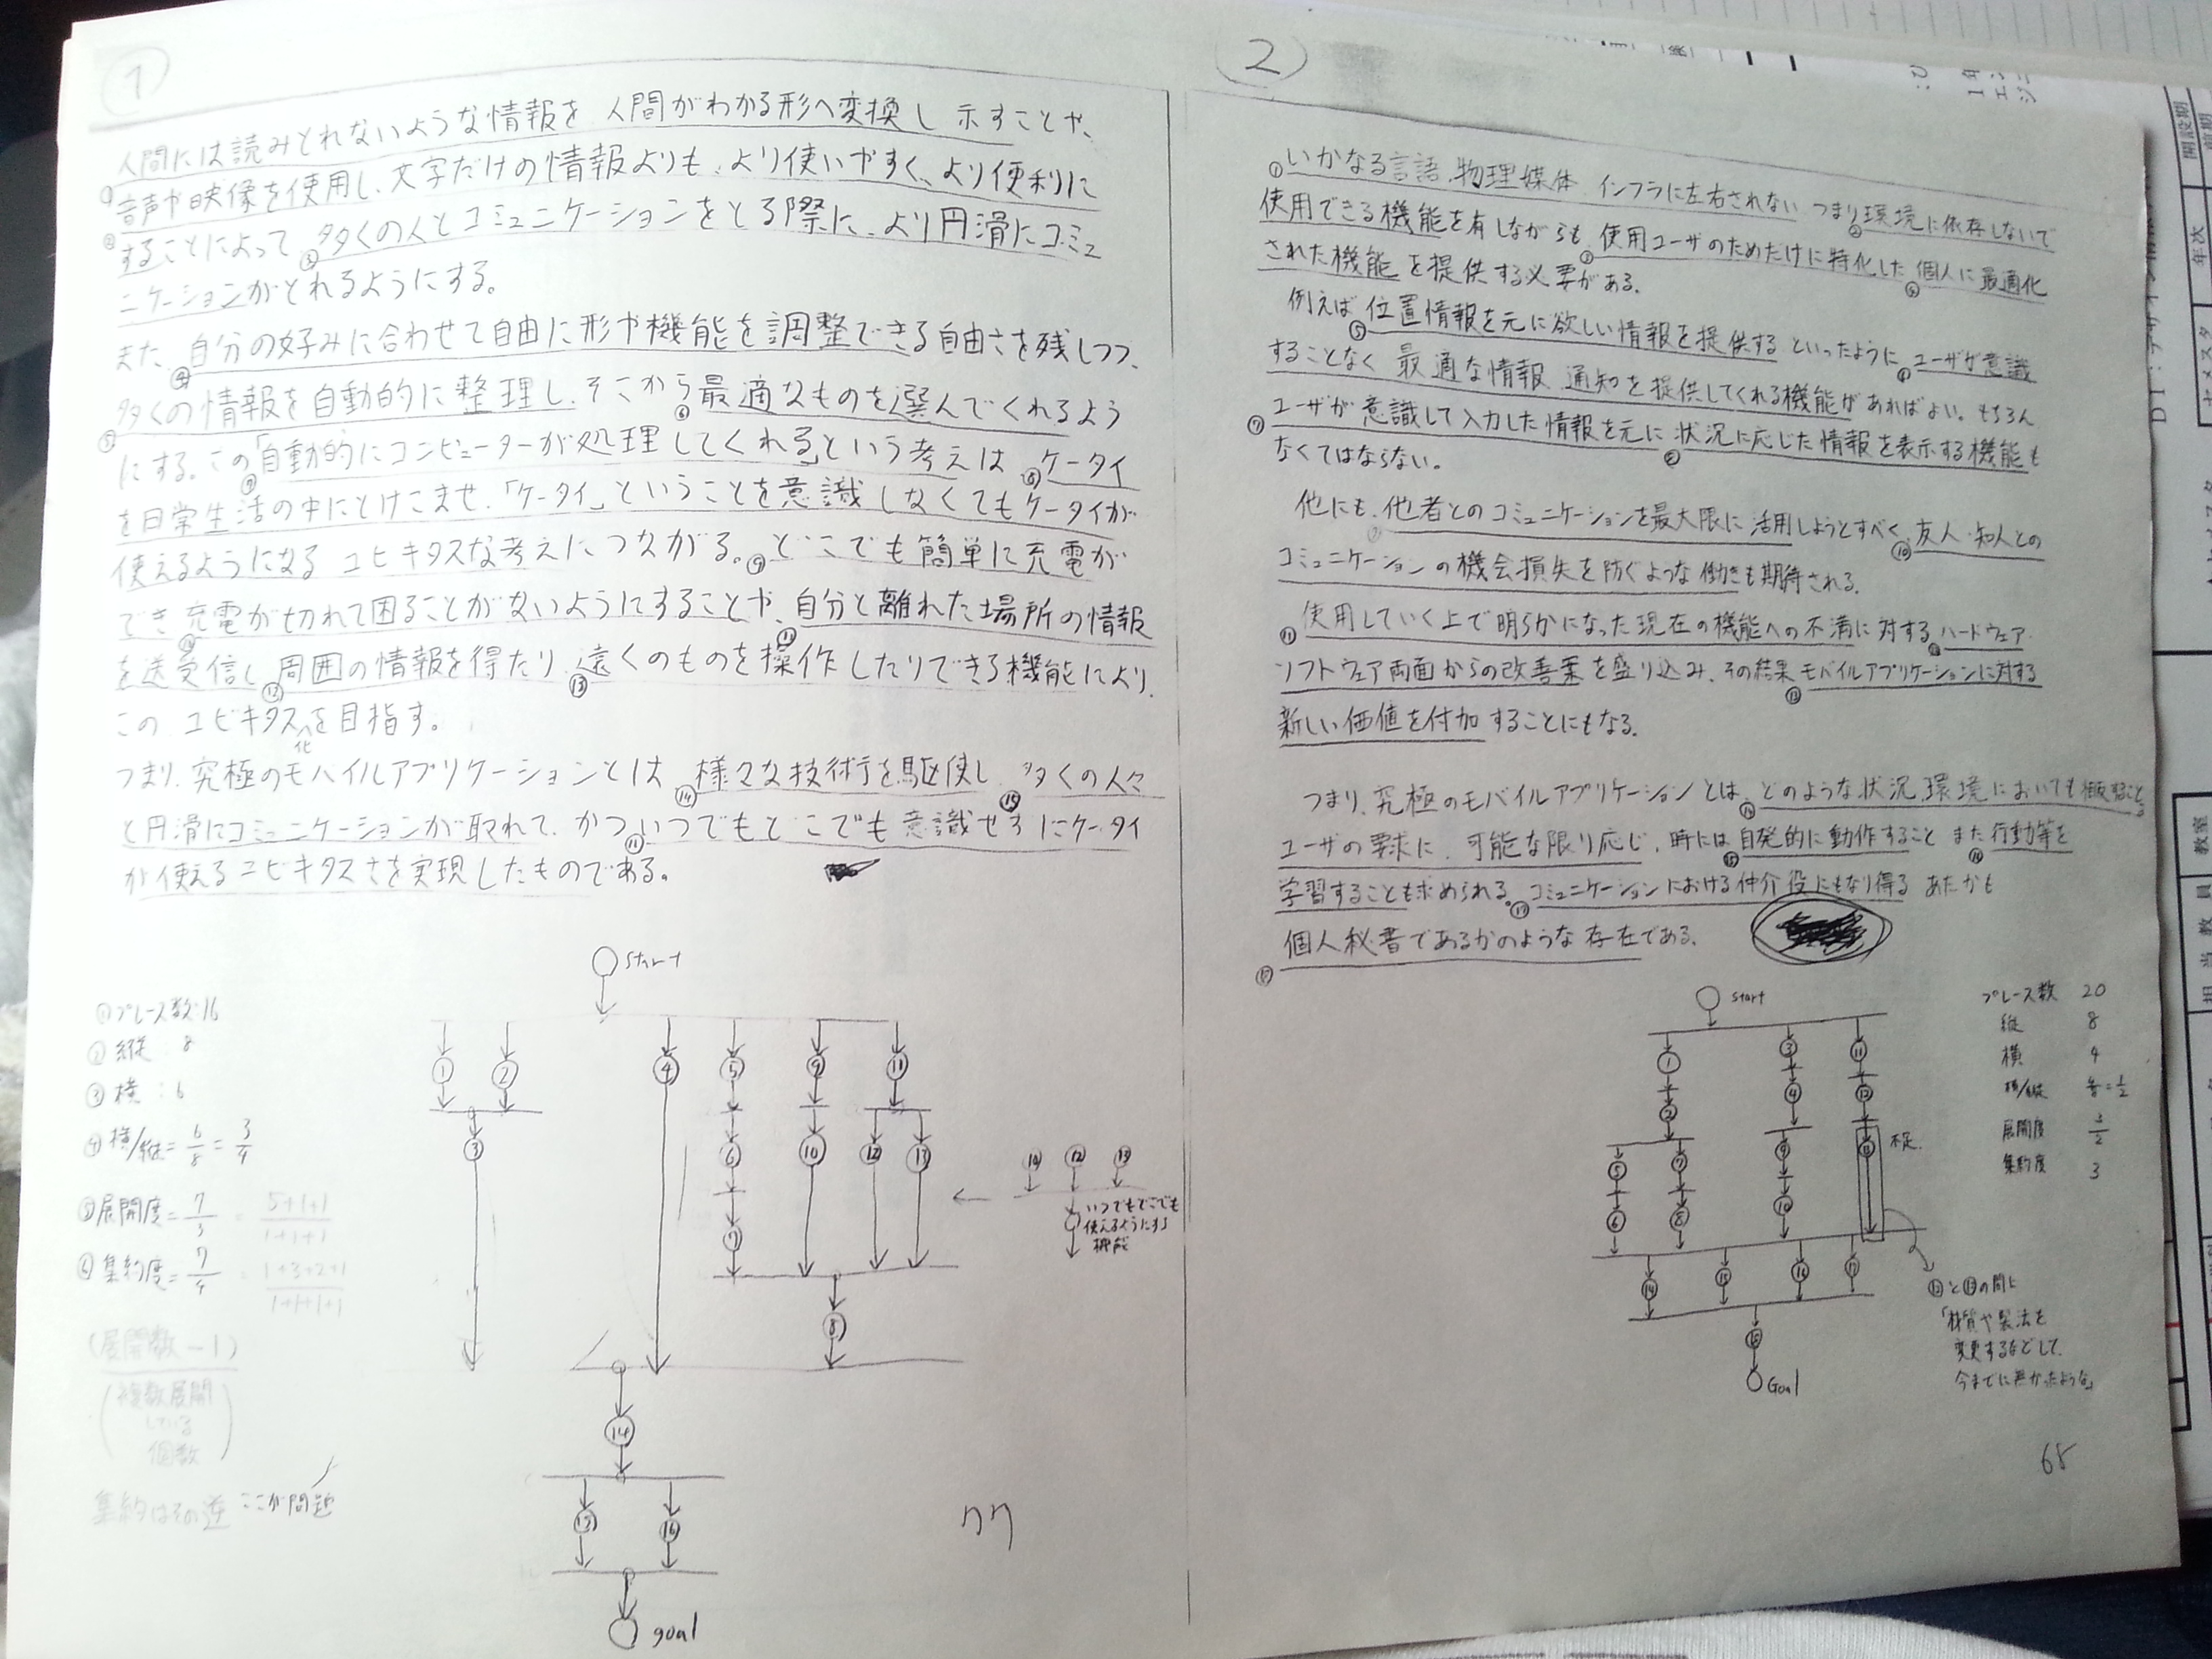 1
人間には読みとれないような情報を 人間がわかる形へ変換し 示すことや、
① 音声や映像を使用し、文字だけの情報よりも、より使いやすく、より便利に
② することによって ③ 多くの人とコミュニケーションをとる際に、より円滑にコミュ
ニケーションがとれるようにする。
また、④ 自分の好みに合わせて自由に形や機能を調整できる自由さを残しつつ、
⑤ 多くの情報を自動的に整理し、そこから ⑥ 最適なものを選んでくれるよう
にする。この ⑦「自動的にコンピューターが処理してくれる」という考えは ⑧ ケータイ
を日常生活の中にとけこませ、「ケータイ」ということを意識しなくてもケータイが
使えるようになる ユビキタスな考えにつながる。⑨ どこでも簡単に充電が
でき ⑩ 充電が切れて困ることがないようにすることや、⑪ 自分と離れた場所の情報
を送受信し ⑫ 周囲の情報を得たり、⑬ 遠くのものを操作したりできる機能により、
この ユビキタス化を目指す。
つまり、究極のモバイルアプリケーションとは ⑭ 様々な技術を駆使し ⑮ 多くの人々
と円滑にコミュニケーションが取れて、かつ ⑯ いつでもどこでも意識せずにケータイ
が使えるユビキタスさを実現したものである。
start
①プレース数:16
②縦:8
③横:6
④横/縦= 6/8 = 3/4
⑤展開度= 7/3 = 5+1+1 / 1+1+1
⑥集約度= 7/4 = 1+3+2+1 / 1+1+1+1
(展開数-1)
(複数展開
している
個数)
集約はその逆 ここが問題
① ② ④ ⑤ ⑨ ⑪
③ ⑥ ⑩ ⑫ ⑬
⑦
⑧
⑭
⑮ ⑯
goal
⑩ ⑫ ⑬
いつでもどこでも
使えるようにする
機能
77
2
① いかなる言語、物理媒体 インフラに左右されない つまり ② 環境に依存しないで
使用できる機能を有しながらも、③ 使用ユーザのためだけに特化した ④ 個人に最適化
された機能 を提供する必要がある。
例えば ⑤ 位置情報を元に欲しい情報を提供する といったように ⑥ ユーザが意識
することなく 最適な情報、通知を提供してくれる機能があればよい。もちろん
⑦ ユーザが意識して入力した情報を元に ⑧ 状況に応じた情報を表示する機能も
なくてはならない。
他にも、⑨ 他者とのコミュニケーションを最大限に活用しようとすべく、⑩ 友人・知人との
コミュニケーションの機会損失を防ぐような働きも期待される。
⑪ 使用していく上で明らかになった現在の機能への不満に対する ⑫ ハードウェア・
ソフトウェア両面からの改善案を盛り込み、その結果 ⑬ モバイルアプリケーションに対する
新しい価値を付加することにもなる。
つまり、究極のモバイルアプリケーションとは、⑭ どのような状況 環境においても
ユーザの要求に、可能な限り応じ、時には ⑮ 自発的に動作すること また ⑯ 行動等を
学習することも求められる。⑰ コミュニケーションにおける仲介役にもなり得る あたかも
⑱ 個人秘書であるかのような存在である。
start
プレース数 20
縦 8
横 4
横/縦 4/8=1/2
展開度
集約度 3
① ③ ⑪
② ④ ⑫
⑤ ⑦ ⑨ ⑬ 不足
⑥ ⑧ ⑩
⑭ ⑮ ⑯ ⑰
⑱
Goal
⑫と⑬の間に
「材質や製法を
変更するなどして、
今までに無かったような」
68